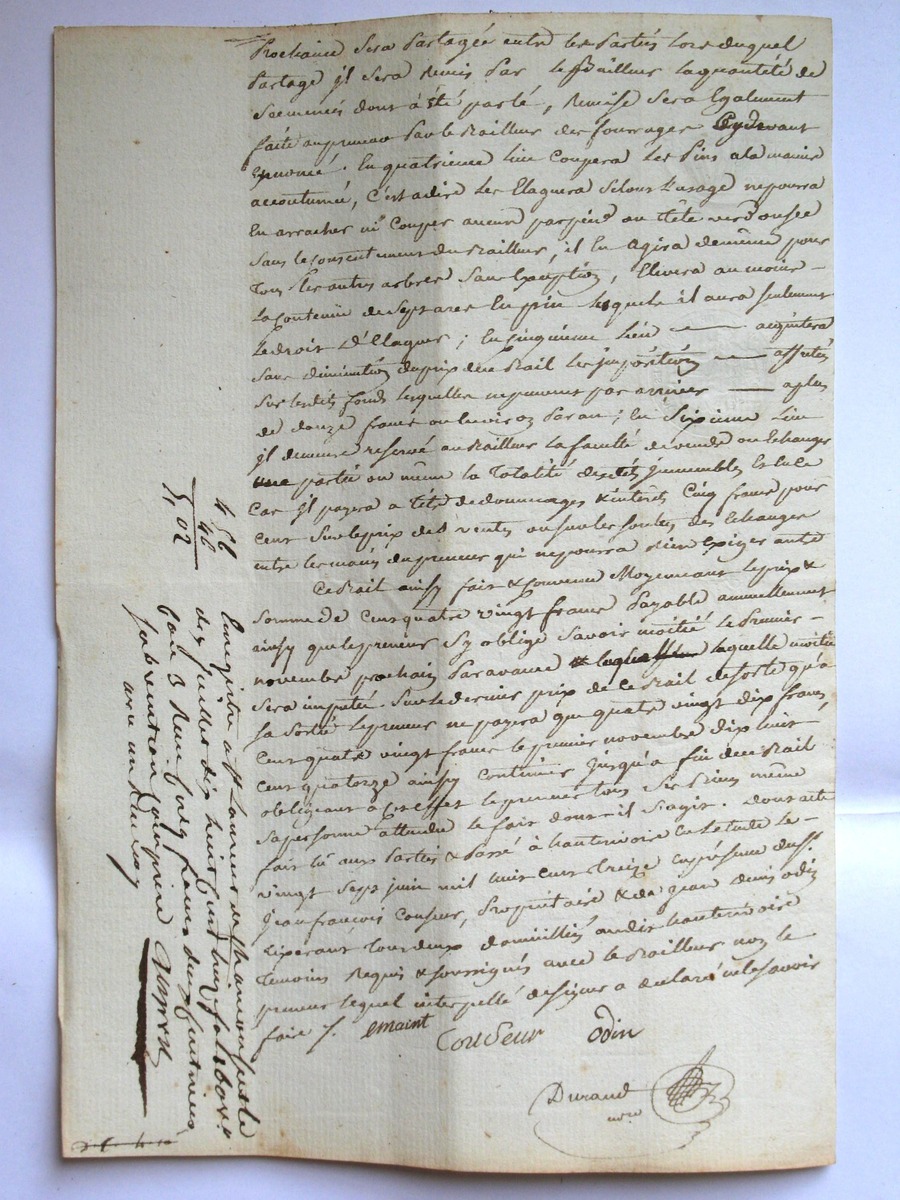 prochaine sera partagée entre les parties lors duquel
partage il sera remis par le Bailleur la quantité de
semences dont a été parlé, Remise sera également
faite au preneur par le Bailleur des fourrages cy devant
énoncé. En quatrieme lieu coupera les pins a la manière
accoutumé, c'est a dire les Elaguera selons l'usage ne poura
En arracher ni couper aucun par pied ou tête verd ou sec
sans le consentement du Bailleur, il En agira de même pour
tous les autres arbres sans Exception, Elevera au moins
la contenue de sept ares En pin lesquels il aura seulement
Le droit D'Elaguer; En cinquieme lieu — acquitera
sans diminution du prix du Bail les impositions — affectées
sur lesdits fonds lesquelles ne peuvent pas arriver — a plus
de douze francs ou Environ par an; En sixieme lieu
il demeure reservé au Bailleur la faculté de vendre ou Echanger
une partie ou même la Totalité desdits immeubles Et ce
car il payera a tête de dommages & interets cinq francs pour
cent sur le prix des ventes ou sur les soultes des Echanges
entre les mains du preneur qui ne pourra rien Exiger autre
Ce Bail ainsy fait & convenu Moyennant le prix &
somme de Cent quatre vingt francs payable annuellement
ainsy que le preneur s'y oblige savoir moitié le premier
novembre prochain par avance laquelle moitié
sera imputée sur le dernier prix de ce Bail de sorte qu'a
sa sortie le preneur ne payera que quatre vingt dix francs,
Cent quatre vingt francs le premier novembre dix huit
cent quatorze ainsy continuer jusqu'a fin de ce Bail
obligeant a cet effet le preneur tous ses biens même
sa personne attendu le fait dont il s'agit. Dont acte
fait lu aux Parties & Passé à hauterivoire En l'Etude le
vingt sept juin mil huit cent treize En présence de sr
Jean françois Couseur, Propriétaire & de jean denis odin
Tisserant tous deux domiciliés audit hauterivoire
Temoins Requis & soussignés avec le Bailleur non le
preneur lequel interpellé de signer a declaré ne le savoir
faire
Couseur odin
Durand
nore
4 56
46
5 02
Enregistré a St Laurent de chamousset le
dix juillet dix huit cent treize
Case 3 Reçu cinq francs deux centimes
subvention comprise